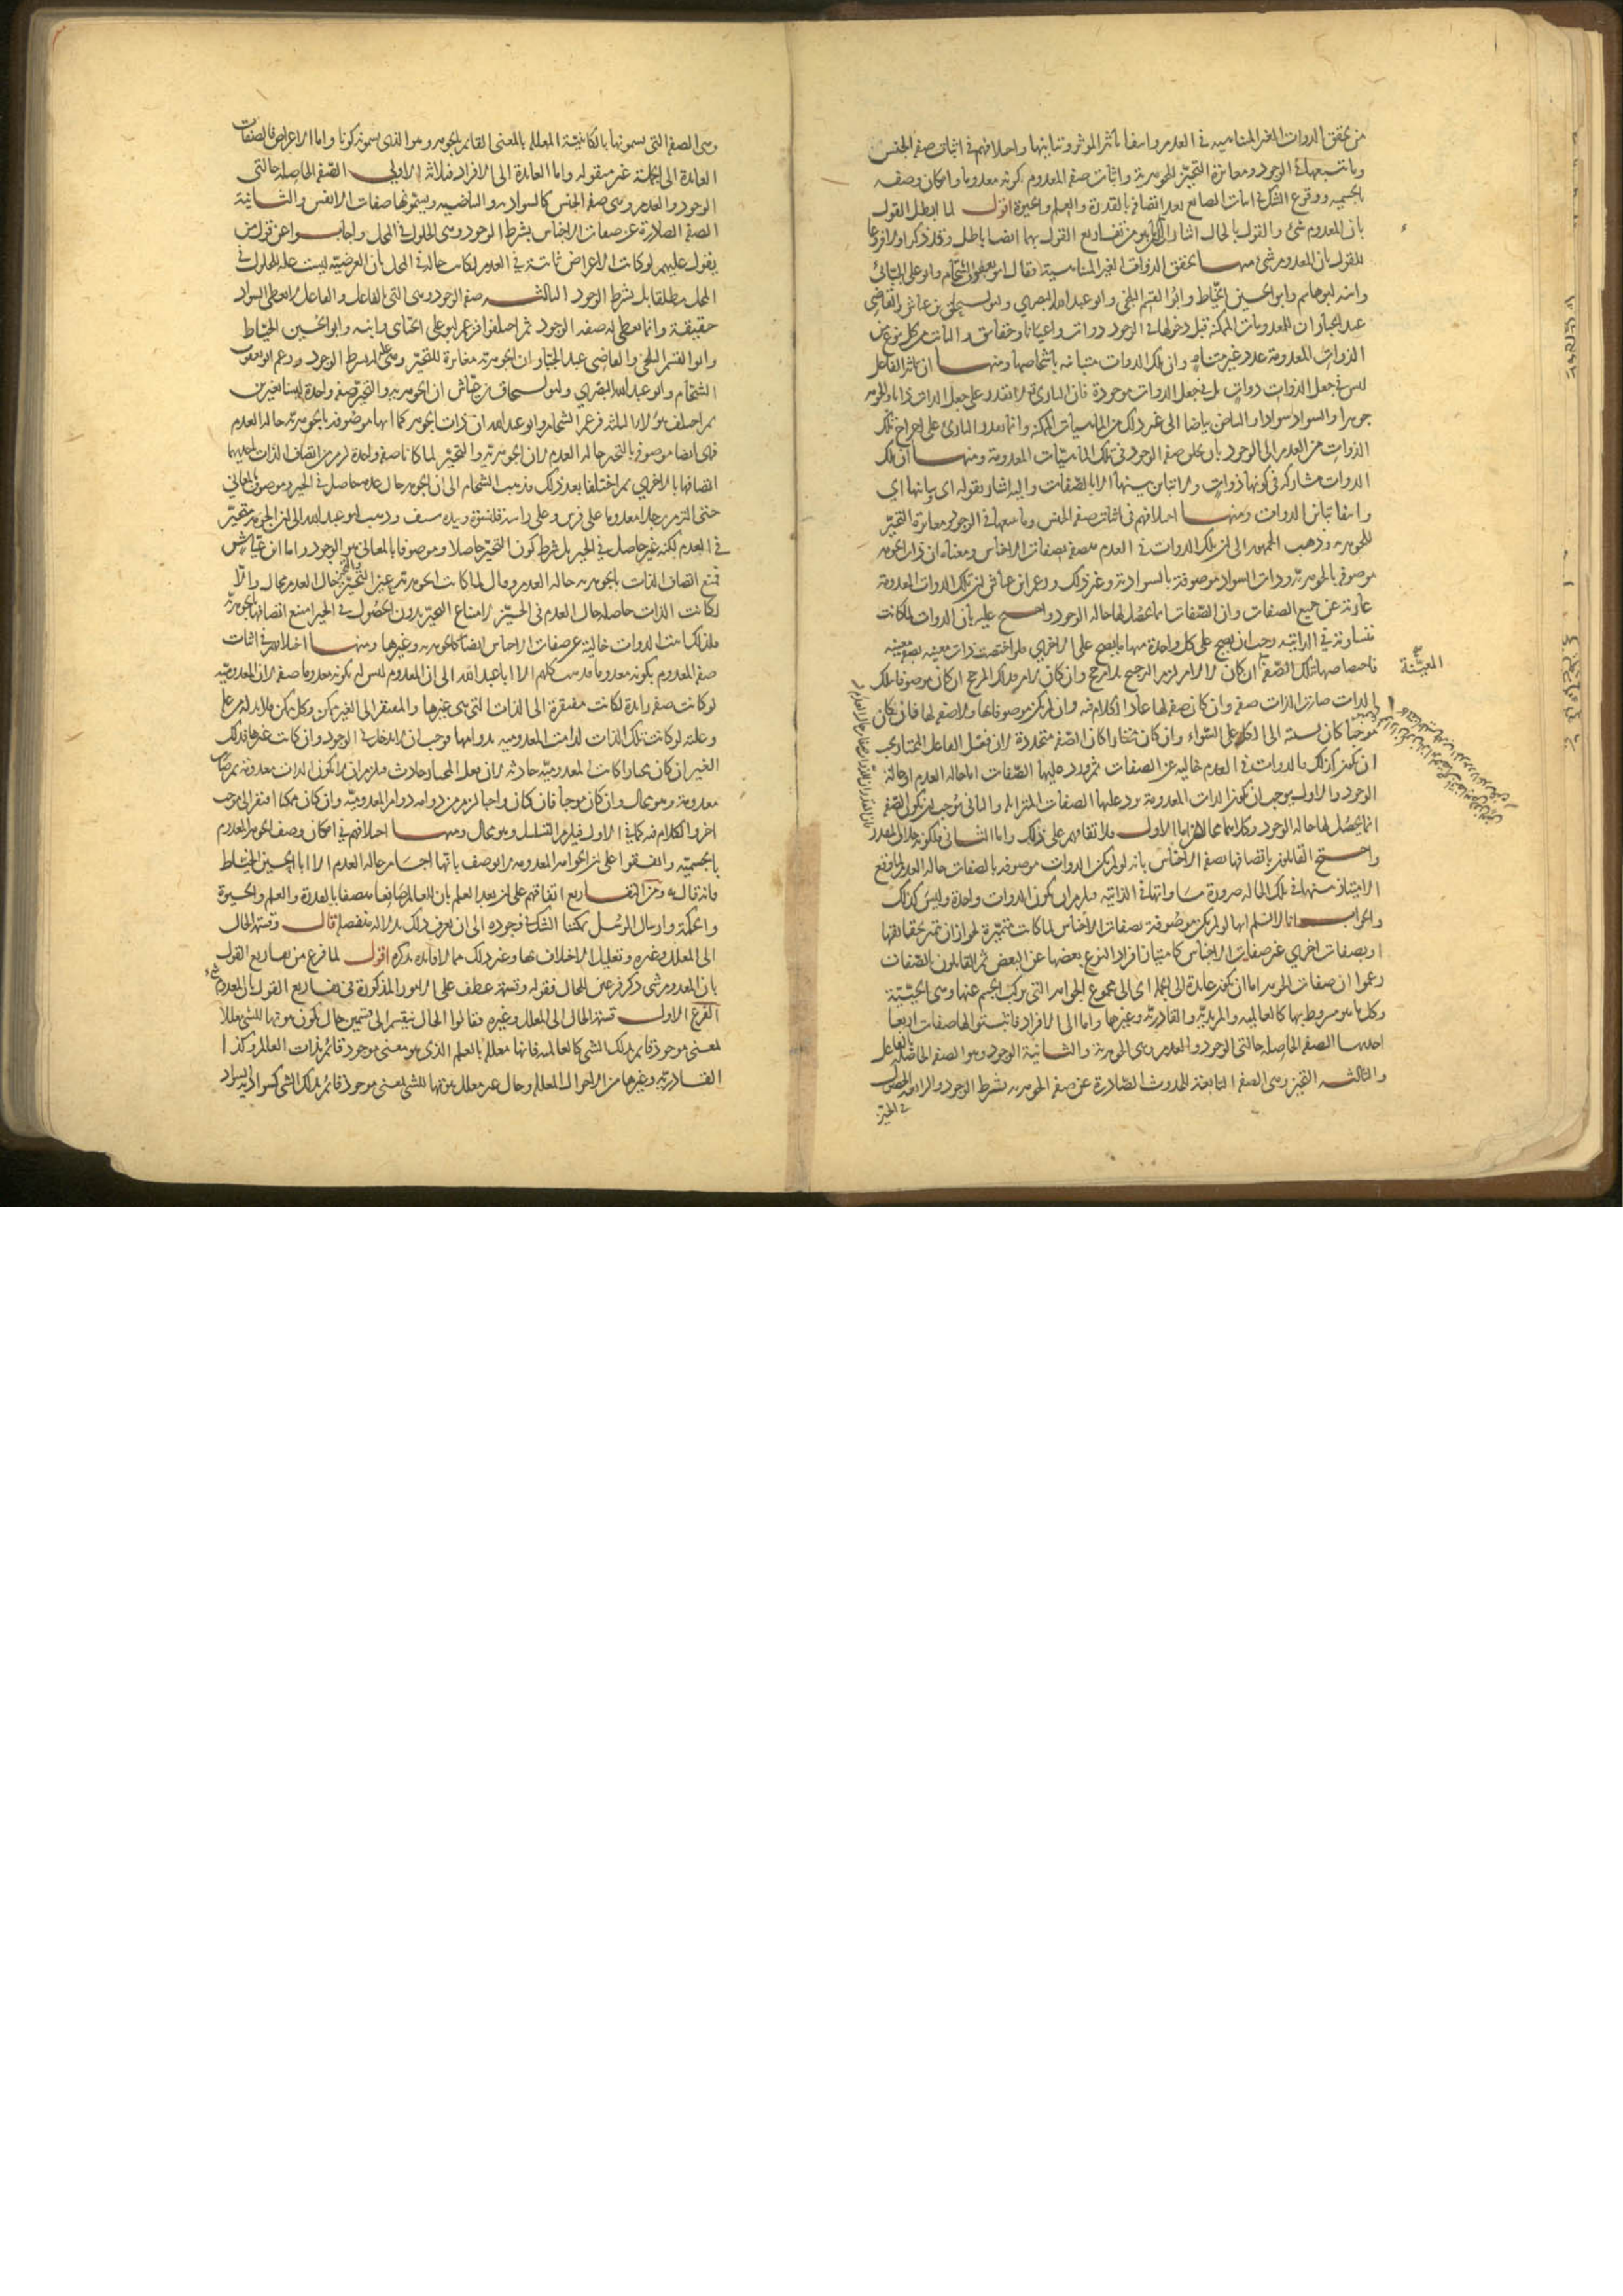 من تحقق الذوات الغير المتناهيه في العدم وانتفا تأثير المؤثر وتباينها واختلافهم في اثبات صفه الجنس
وما تتبعها في الوجود ومغايرة التحيز للجوهرية واثبات صفه المعدوم بكونه معدوما وامكان وصفه
بالجسميه ووقوع الشك في اثبات الصانع بعد اتصافه بالقدرة والعلم والحيوة اقول لما ابطل القول
بان المعدوم شئ والقول بالحال اشار الى ما هو من تفاريع القول بهما ايضا باطل وقد ذكر اولا فروعا
للقول بان المعدوم شئ منها تحقق الذوات الغير المتناهية فقال ابو يعقوب الشحام وابو علي الجبائي
وابنه ابو هاشم وابو الحسين الخياط وابو القسم البلخي وابو عبد الله البصري وابو اسحق بن عياش والقاضي
عبد الجبار ان المعدومات الممكنة قبل دخولها في الوجود ذوات واعيانا وحقائق والثابت من كل نوع من
الذوات المعدومة عدد غير متناه وان تلك الذوات متباينه باشخاصها ومنها ان تاثير الفاعل
ليس في جعل الذوات ذوات بل في جعل الذوات موجودة فان البارئ لا يقدر على جعل الذات ذاتا والجوهر
جوهرا والسواد سوادا والبياض بياضا الى غير ذلك من الماهيات الممكنة وانما يقدر البارئ على اخراج تلك
الذوات من العدم الى الوجود بان يجعل صفه الوجود في تلك الماهيات المعدومة ومنها ان تلك
الذوات مشاركه في كونها ذوات ولا تباين بينها الا بالصفات واليه اشار بقوله اي بيانها اي
وانتفا تباين الذوات ومنها اختلافهم في اثبات صفه الجنس وما يتبعها في الوجود ومغايرة التحيز
للجوهرية وذهب الجمهور الى ان تلك الذوات في العدم متصفه بصفات الاجناس ومعناه ان ذات الجوهر
موصوفة بالجوهرية وذات السواد موصوفة بالسوادية وغير ذلك وزعم ابن عياش ان تلك الذوات المعدومة
عارية عن جميع الصفات وان الصفات انما تحصل لها حاله الوجود واحتج عليه بان الذوات لما كانت
متساوية في الذاتيه وجب ان يصح على كل واحدة منها ما يصح على الاخرى فلو اختصت ذات معينه بصفه معينه
فاختصاصها بتلك الصفة ان كان لا لامر لزم الترجيح بلا مرجح وان كان لامر فذلك المرجح ان كان موصوفا بتلك
المعينة
الذات صارت الذات صفه وان كان صفه لها عاد الكلام فيه وان لم يكن موصوفا بها ولا صفه لها فان كان
موجبا كان نسبته الى الكل على السواء وان كان مختارا كان الصفه متجددة لان فعل الفاعل المختار يجب
ان يكون كذلك فالذوات في العدم خاليه عن الصفات ثم ورد عليها الصفات اما حاله العدم او حالة
الوجود والاول يوجب ان يكون الذات المعدومة يرد عليها الصفات المتزايلة والثاني يوجب ان يكون الصفه
انما يحصل لها حاله الوجود وكلاهما محالان اما الاول فلاتفاقهم على ذلك واما الثاني فلكونه خلاف المقدر
واحتج القائلون باتصافها بصفه الاجناس بانه لو لم يكن الذوات موصوفه بالصفات حاله العدم لما وقع
الامتياز بينها في تلك الحالة ضرورة مساواتها في الذاتيه فيلزم ان يكون الذوات واحدة وليس كذلك
والجواب انا لا نسلم انها لو لم يكن موصوفة بصفات الاجناس لما كانت متميزة لجواز ان يتميز بحقائقها
او بصفات اخرى غير صفات الاجناس كامتياز افراد النوع بعضها عن البعض ثم القائلون بالصفات
زعموا ان صفات الجوهر اما ان يكون عائدة الى الجملة اي الى مجموع الجواهر التي تركب الجسم عنها وهي الحييية
وكل ما هو مشروط بها كالعالمية والمريدية والقادرية وغيرها واما الى الافراد فاثبتوا لها صفات اربعا
احديها الصفه الحاصله حالتي الوجود والعدم وهي الجوهرية والثانية الوجود وهو الصفه الحاصلة بالفاعل
والثالثه التحيز وهي الصفه التابعة للحدوث الصادرة عن صفه الجوهرية بشرط الوجود والرابعه الحصول
في الحيز
وهي الصفه التي يسمونها بالكائنية المعللة بالمعنى القائم بالجوهر وهو الذي يسمونه كونا واما الاعراض فالصفات
العائدة الى الجملة غير معقوله واما العائدة الى الافراد فثلاثه الاولى الصفه الحاصله حالتي
الوجود والعدم وهي صفه الجنس كالسوادية والبياضيه ويسمونها صفات الانفس والثانية
الصفه الصادرة عن صفات الاجناس بشرط الوجود وهي الحلول في المحل واجابوا عن قول من
يقول عليهم لو كانت الاعراض ثابتة في العدم لكانت حاله في المحل بان العرضيه ليست علة للحلول في
المحل مطلقا بل بشرط الوجود الثالثه صفه الوجود وهي التي بالفاعل والفاعل لا يعطي السواد
حقيقته وانما يعطي له صفه الوجود ثم اختلفوا فزعم ابو علي الجبائي وابنه وابو الحسين الخياط
وابو القسم البلخي والقاضي عبد الجبار ان الجوهرية مغايرة للتحيز وهي علة له بشرط الوجود وزعم ابو يعقوب
الشحام وابو عبد الله البصري وابو اسحاق بن عياش ان الجوهرية والتحيز صفه واحدة ليستا متغايرتين
ثم اختلف هؤلاء الثلثه فزعم الشحام وابو عبد الله ان ذات الجوهر كما انها موصوفه بالجوهرية حاله العدم
فهي ايضا موصوفة بالتحيز حاله العدم لان الجوهرية والتحيز لما كانا صفه واحدة لزم من اتصاف الذات باحديهما
اتصافها بالاخرى ثم اختلفا بعد ذلك فذهب الشحام الى ان الجوهر حال عدمه حاصل في الحيز وموصوف بالمعاني
حتى التزم رجلا معدوما على فرس وعلى راسه قلنسوة وبيده سيف وذهب ابو عبد الله الى ان الجوهر متحيز
في العدم لكنه غير حاصل في الحيز بل شرط كون التحيز حاصلا وموصوفا بالمعاني هو الوجود واما ابن عياش
فمنع اتصاف الذات بالجوهرية حاله العدم وقال لما كانت الجوهرية عين التحيز والتحيز حال العدم محال والا
لكانت الذات حاصله حال العدم في الحيز لامتناع التحيز بدون الحصول في الحيز امتنع اتصافها بالجوهرية
فلذلك اثبت الذوات خالية عن صفات الاجناس ايضا كالجوهرية وغيرها ومنها اختلافهم في اثبات
صفه المعدوم بكونه معدوما فذهب كلهم الا ابا عبد الله الى ان المعدوم ليس له بكونه معدوما صفه لان المعدوميه
لو كانت صفه زائدة لكانت مفتقرة الى الذات التي هي غيرها والمفتقر الى الغير ممكن وكل ممكن فلا بد له من علة
وعلته لو كانت تلك الذات لدامت المعدوميه بدوامها فوجب ان لا يدخل في الوجود وان كانت غيرها فذلك
الغير ان كان مختارا كانت المعدوميه حادثه لان فعل المختار حادث فيلزم ان لا تكون الذات معدومة ثم صارت
معدومة وهو محال وان كان موجبا فان كان واجبا لزم من دوامه دوام المعدوميه وان كان ممكنا افتقر الى موجب
اخر والكلام فيه كما في الاول فيلزم التسلسل وهو محال ومنها اختلافهم في امكان وصف الجوهر المعدوم
بالجسميه واتفقوا على ان الجواهر المعدومه لا يوصف بانها اجسام حاله العدم الا ابا الحسين الخياط
فانه قال به ومن التفاريع اتفاقهم على ان بعد العلم بان للعالم صانعا متصفا بالقدرة والعلم والحيوة
والحكمة وارسال الرسل يمكننا الشك في وجوده الى ان نعرف ذلك بدلالة منفصلة قال وقسمة الحال
الى المعلل وغيره وتعليل الاختلاف بها وغير ذلك مما لا فائده بذكره اقول لما فرغ من تفاريع القول
بان المعدوم شئ ذكر فرعين للحال فقوله وقسمة عطف على الامور المذكورة في تفاريع القول بان المعدوم شئ
الفرع الاول قسمة الحال الى المعلل وغيره فقالوا الحال ينقسم الى قسمين حال يكون ثبوتها للشئ معللا
لمعنى موجود قائم بذلك الشئ كالعالميه فانها معلله بالعلم الذي هو معنى موجود قائم بذات العالم وكذا
القادرية وغيرها من الاحوال المعلله وحال غير معلل ثبوتها للشئ لمعنى موجود قائم بذلك الشئ كسوادية السواد